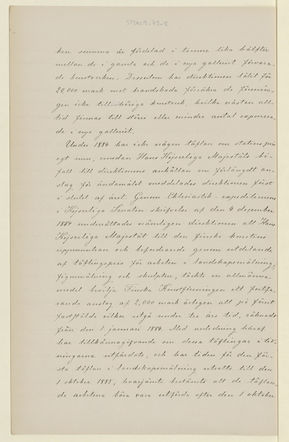 ken summa är fördelad i tvenne lika hälfter
mellan de i gamla och de i nya galleriet förvara-
de konstverken. Dessutom har direktionen låtit för
20,000 mark mot brandskada försäkra de förenin-
gen icke tillhöriga konstverk, hvilka nästan all-
tid finnas till större eller mindre antal exponera-
de i nya galleriet.
Under 1884 har icke någon täflan om statens pris
egt rum, emedan Hans Kejserliga Majestäts be-
fall till direktionens anhållan om förlängdt an-
slag för ändamålet meddelades direktionen först
i slutet af året. Genom Eklesiastik-expeditionens
i Kejserliga Senaten skrifvelse af den 4 december
1884 underrättades nämligen direktionen att Hans
Kejserliga Majestät till den finska konstens
uppmuntran och befrämjande genom utdelande
af täflingspris för arbeten i landskapsmålning,
figurmålning och skulptur, täckts en allmänna
medel bevilja Finska Konstföreningen ett fortfa-
rande anslag af 2,000 mark årligen att på förut
fastställda vilkor utgå under tre års tid, räknadt
från den 1 januari 1884. Med anledning häraf
har tillkännagifvande om dessa täflingar i tid-
ningarna utfärdats, och har tiden för den för-
sta täflan i landskapsmålning utsatts till den
1 oktober 1885, hvarjemte bestämts att de täflan-
de arbetena böra vara utförda efter den 1 oktober